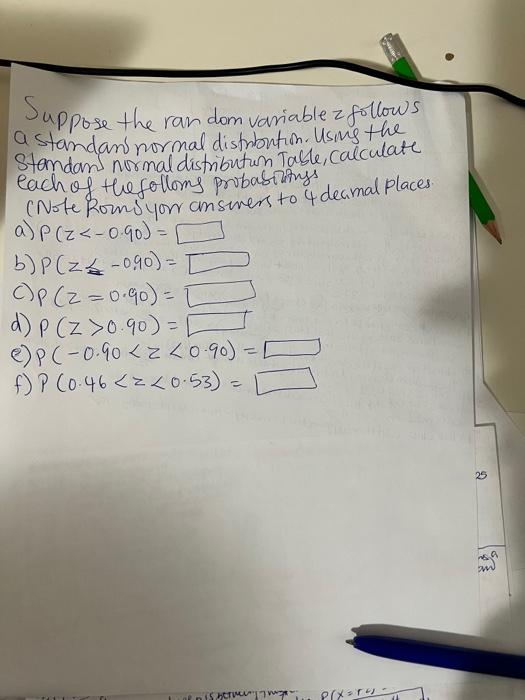 Suppose the random variable z follows
a standard normal distribution. Using the
Standard normal distribution Table, calculate
each of the following probabilities
(Note Round your answers to 4 decimal places.
a) P(z < -0.90) =
b) P(z ≤ -0.90) =
c) P(z = 0.90) =
d) P(z > 0.90) =
e) P(-0.90 < z < 0.90) =
f) P(0.46 < z < 0.53) =
25